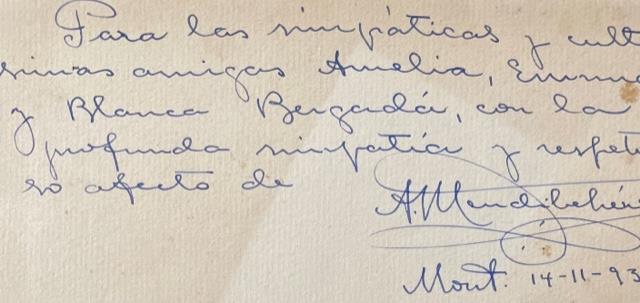 Para las simpáticas y cult
simas amigas Amelia, Emma
y Blanca Bergadá, con la
profunda simpatía y respet
so afecto de
A. Mendibehére
Mont. 14-11-93